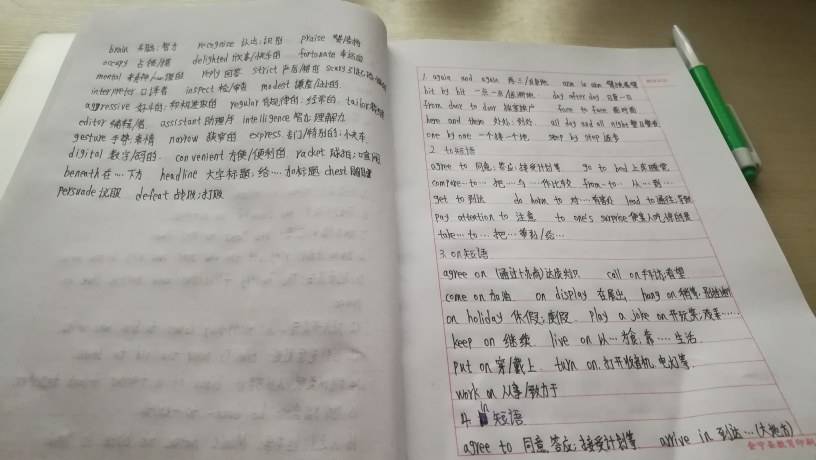 brain 头脑；智力 recognize 认出；识别 praise 赞扬
occupy 占领 delighted 快乐的 fortunate 幸运的
mental 精神 reply 回答 strict 严厉 scary
interpreter 口译者 inspect 检查 modest 谦虚
aggressive 好斗的 regular 有规律的；经常的 tailor
editor 编辑 assistant 助理 intelligence 智力 理解力
gesture 手势 表情 narrow 狭窄的 express 专门/特别的；快车
digital 数字的 convenient 方便/便利的 racket 球拍；喧闹
beneath 在…下方 headline 大字标题；给…加标题 chest 胸膛
persuade 说服 defeat 战败；打败
1. again and again 再三 arm in arm
bit by bit 一点一点 day after day 日复一日
from door to door 挨家挨户 face to face 面对面
here and there 处处；到处 all day and all night 整日整夜
one by one 一个接一个地 step by step 逐步
2. to短语
agree to 同意；答应；接受计划等 go to bed 上床睡觉
compare…to… 把…与…作比较 from…to… 从…到…
get to 到达 do harm to 对…有害处 lead to 通往；导致
pay attention to 注意 to one's surprise 使某人吃惊的是
take…to… 把…带到/给…
3. on短语
agree on 达成共识 call on 拜访；看望
come on 加油 on display 在展出 hang on 稍等
on holiday 休假；度假 play a joke on 开玩笑
keep on 继续 live on 以…为食；靠…生活
put on 穿/戴上 turn on 打开收音机、电灯等
work on 从事/致力于
4. in 短语
agree to 同意 答应；接受计划等 arrive in 到达…(大地方)